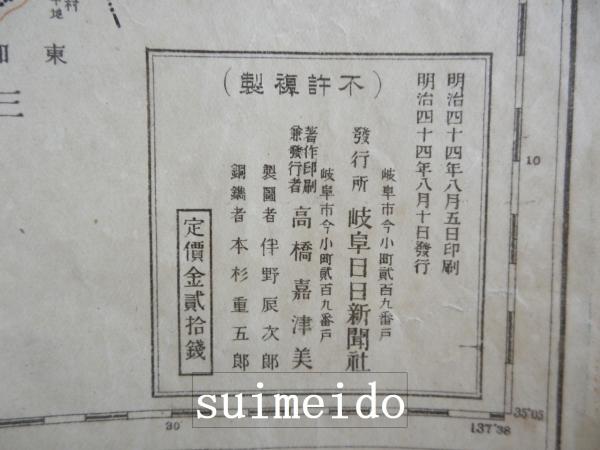 村
東
三
（不許複製）
明治四十四年八月五日印刷
明治四十四年八月十日發行
岐阜市今小町貳百九番戸
發行所 岐阜日日新聞社
岐阜市今小町貳百九番戸
著作印刷
兼發行者 高橋嘉津美
製圖者 伴野辰次郎
銅鐫者 本杉重五郎
定價金貳拾錢
10
30'
35°05
137°38
suimeido